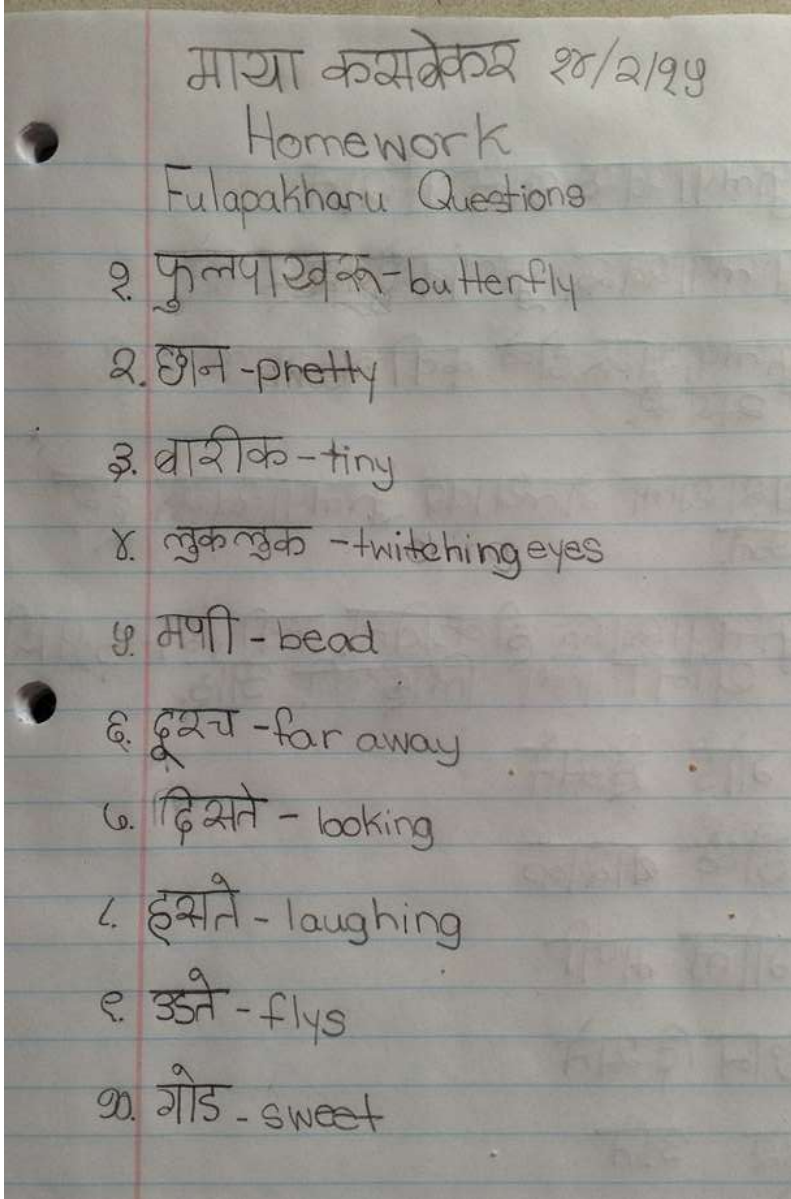 माया कसबेकर १४/२/१५
Homework
Fulapakharu Questions
१. फुलपाखरू-butterfly
२. छान -pretty
३. बारीक-tiny
४. लुकलुक -twitching eyes
५. मणी - bead
६. दूरच -far away
७. दिसते - looking
८. हसते - laughing
९. उडते - flys
१०. गोड - sweet